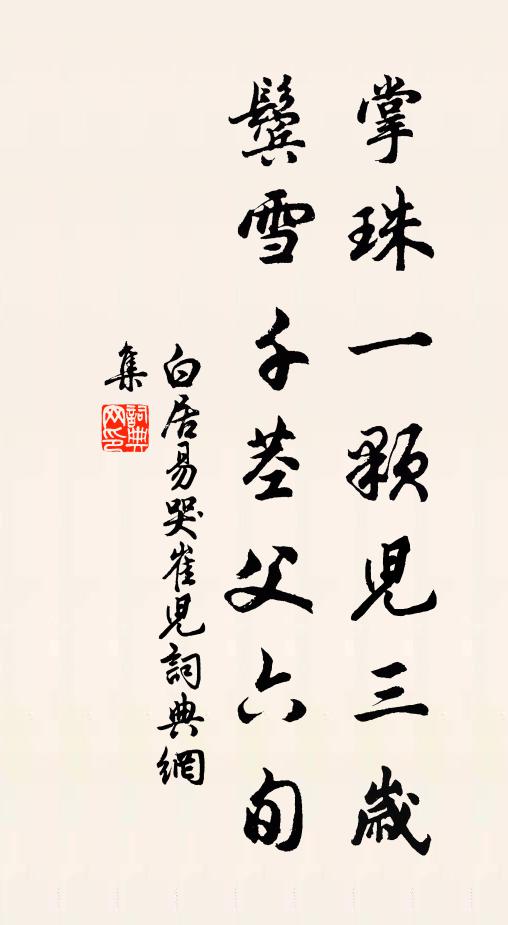 掌珠一顆児三歲
鬢雪千莖父六旬
白居易哭崔児詞典網
集
詞典
网印